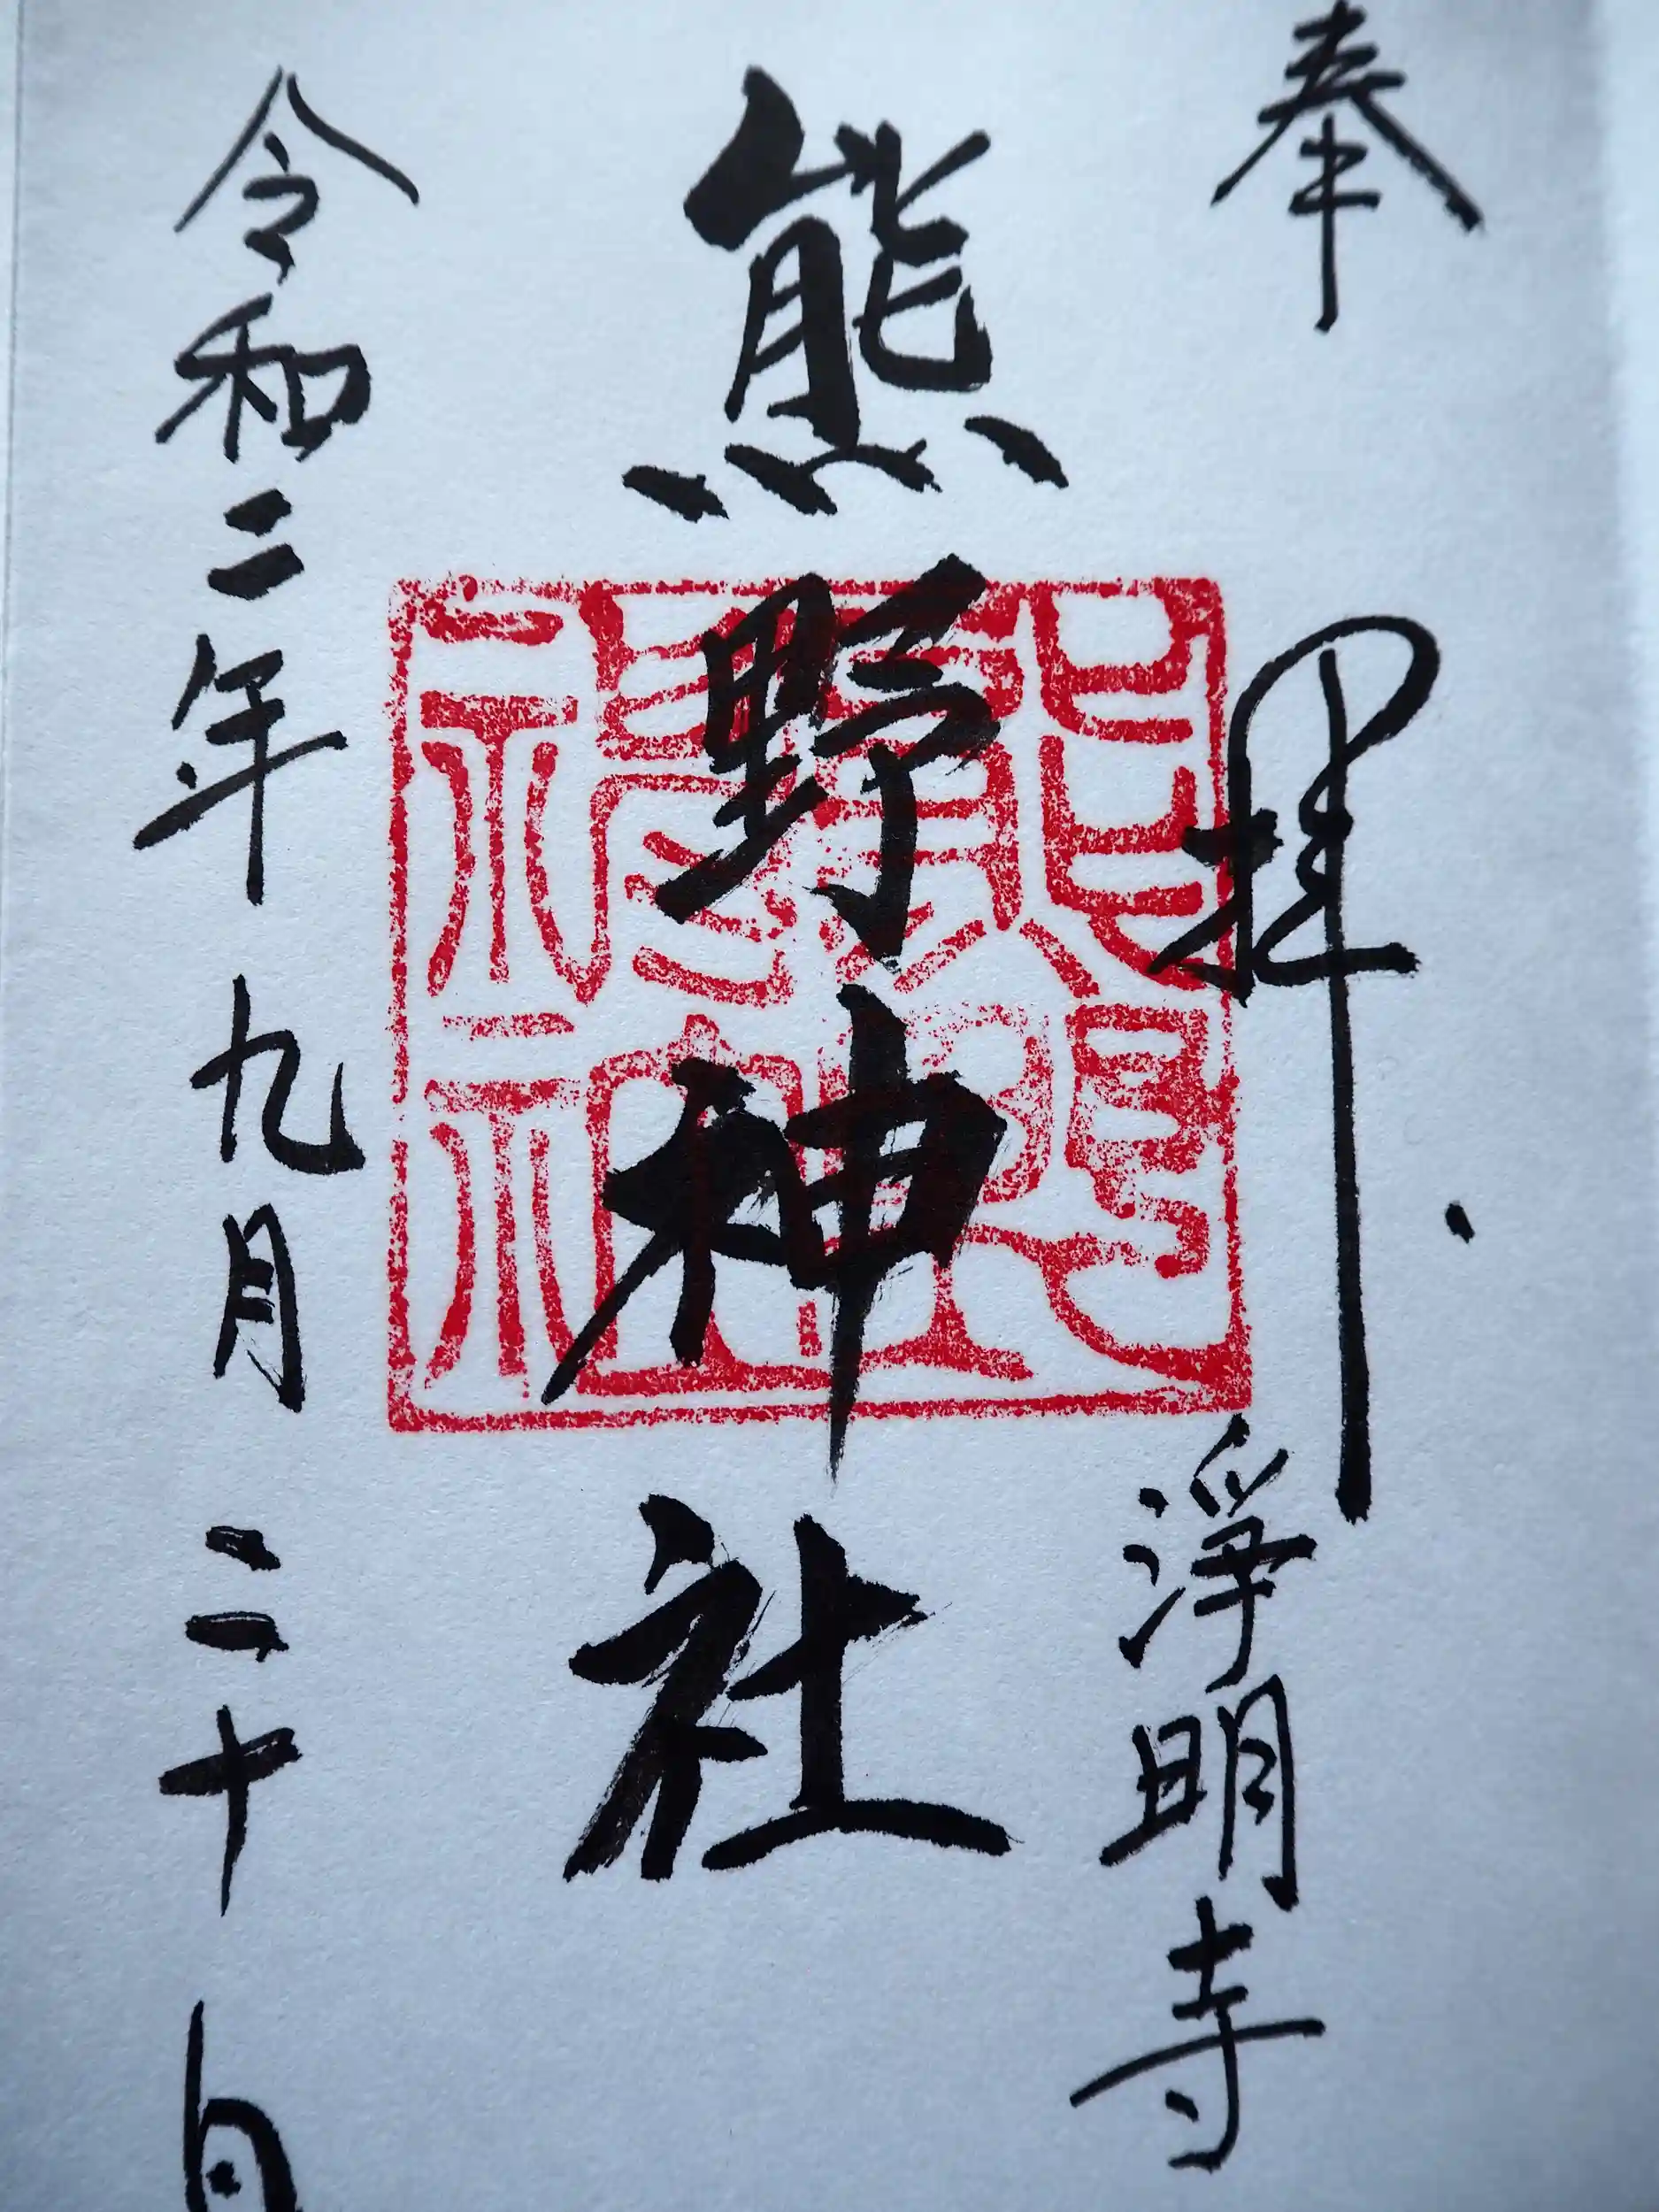 奉拝
浄明寺
熊野神社
令和二年九月二十日